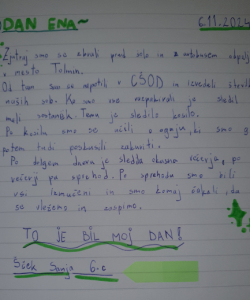 DAN ENA~
6.11.202
Zjutraj smo se zbrali pred šolo in z avtobusom odpelj
v mesto Tolmin.
Od tam smo se napotili v CŠOD in izvedeli številk
naših sob. Ko smo se razpakirali je sledil
mali sestanek. Temu je sledilo kosilo.
Po kosilu smo se učili o ognju, ki smo g
potem tudi poskusili zakuriti.
Po dolgem dnevu je sledila okusna večerja, po
večerji pa sprehod. Po sprehodu smo bili
vsi izmučeni in smo komaj čakali, da
se uležemo in zaspimo.
TO JE BIL MOJ DAN!
Šček Sanja 6.c